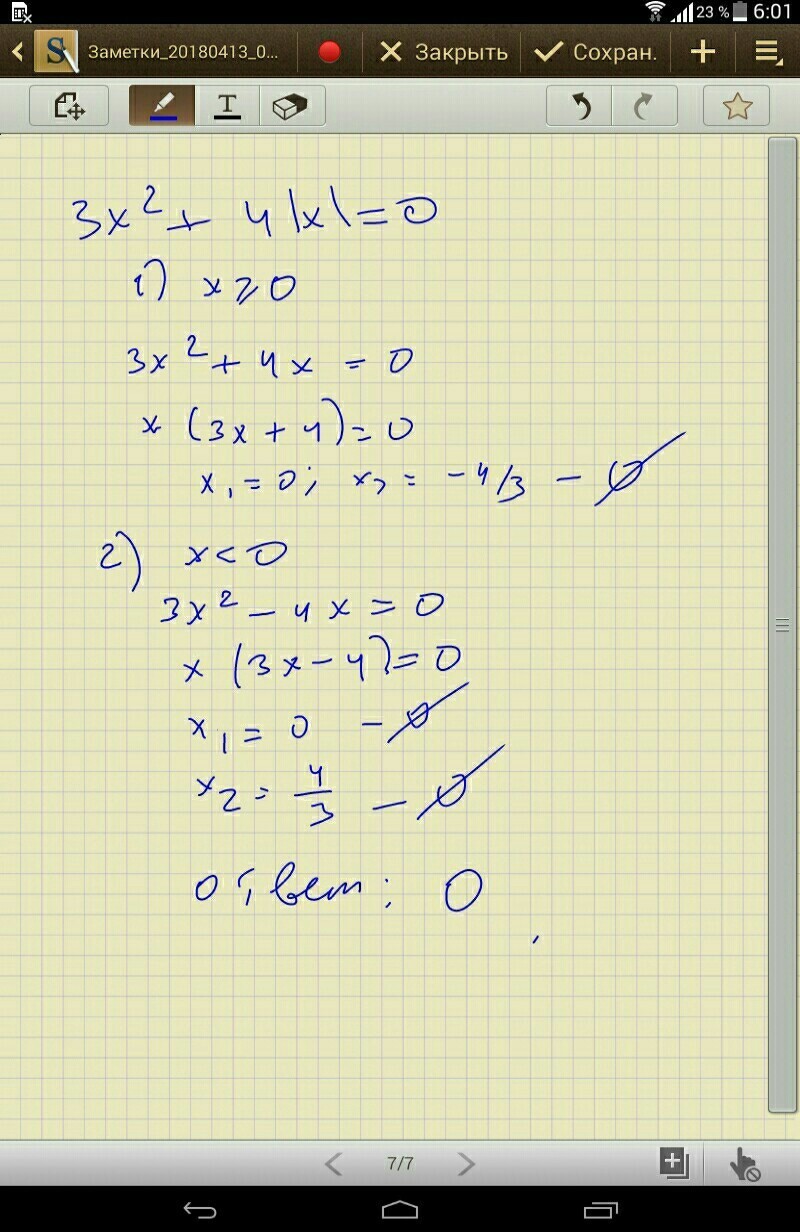 23 % 6:01
Заметки_20180413_0... Закрыть Сохран.
T
3x² + 4|x| = 0
1) x ⩾ 0
3x² + 4x = 0
x (3x + 4) = 0
x₁ = 0; x₂ = -4/3 - ∅
2) x < 0
3x² - 4x = 0
x (3x - 4) = 0
x₁ = 0 - ∅
x₂ = 4/3 - ∅
ответ: 0
7/7